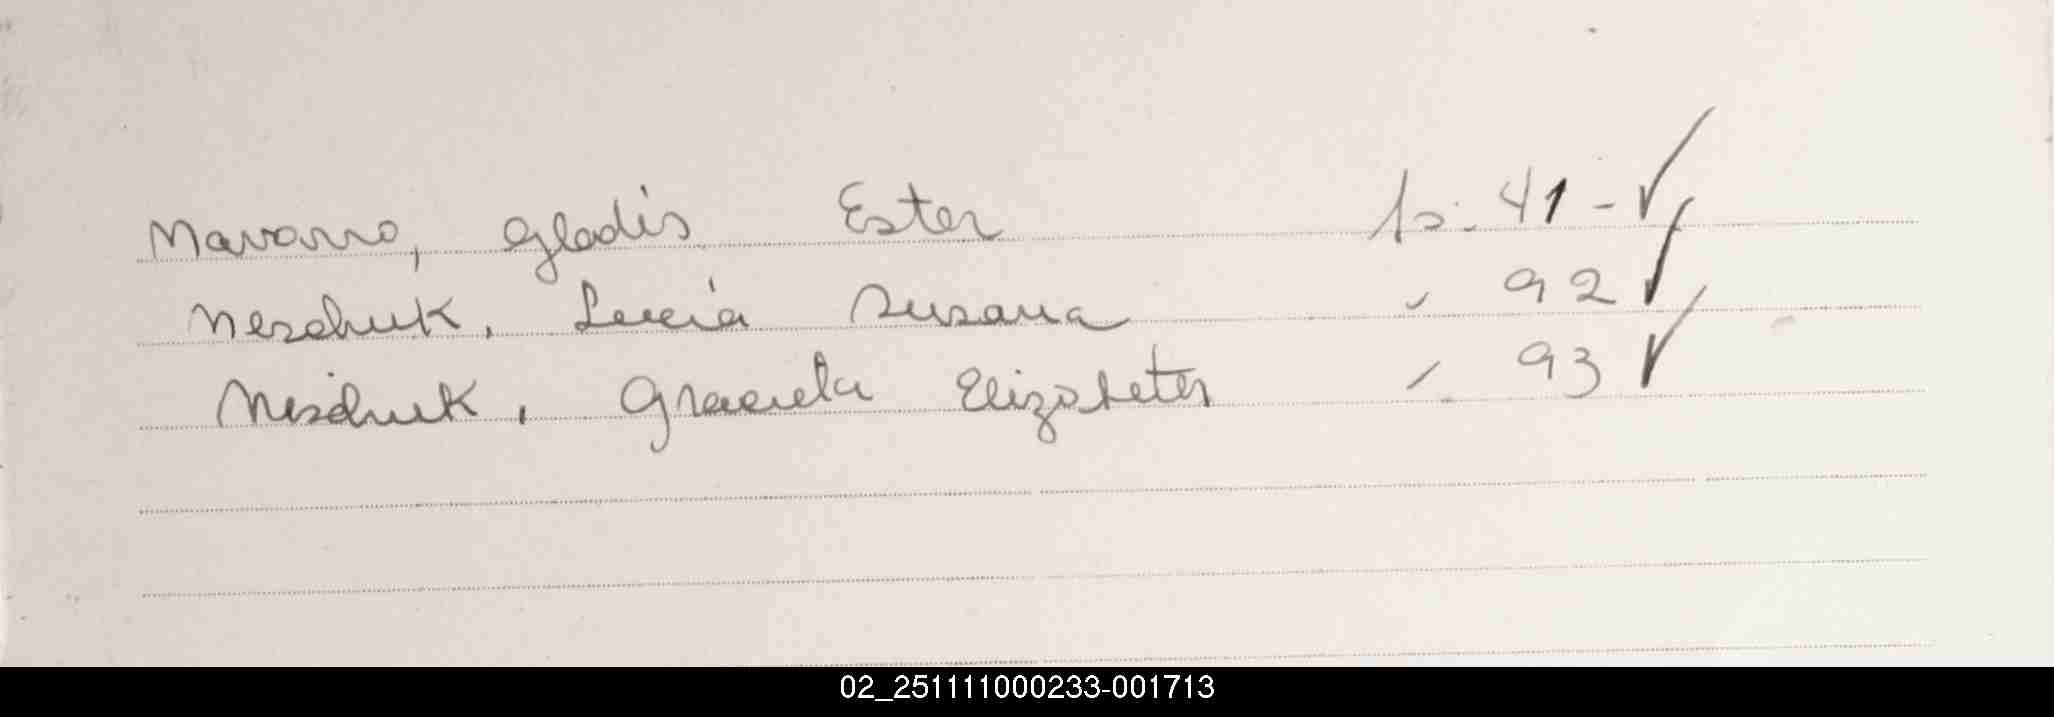 Navarro, Gladis Ester fs. 41 - ✓
Neschuk, Lucía Susana " 92 ✓
Neschuk, Graciela Elizabeter " 93 ✓
02_251111000233-001713